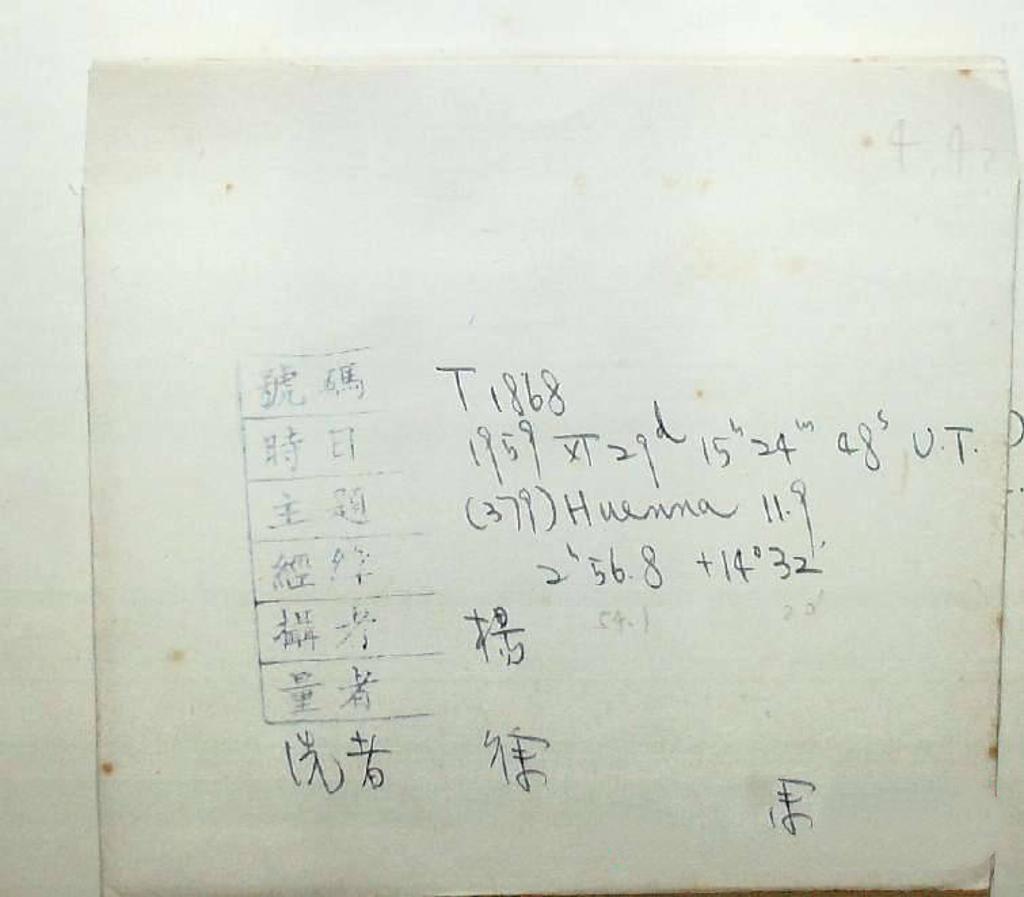 號碼 T 1868
時日 1959 XI 29ᵈ 15ʰ 24ᵐ 48ˢ U.T.
主題 (379) Huenna 11.9
經緯 2ʰ56.8 +14°32′
54.1 20′
攝者 楊
量者
洗者 徐